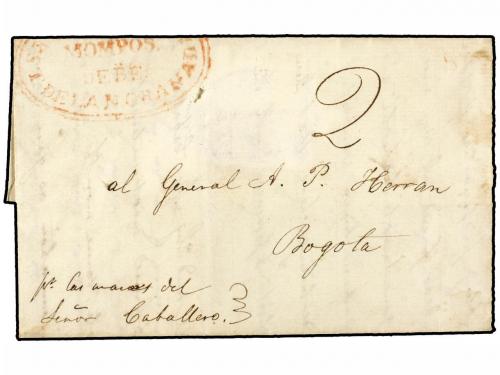 MOMPOS
DEBE
E. DE LA N GRANAD
2
al General A. P. Herran
Bogota
pr. las manos del
Señor Caballero.